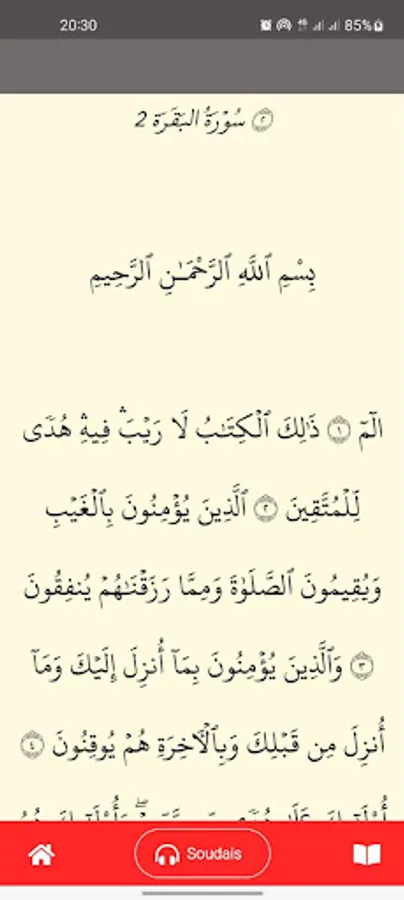 20:30 85%
سُورَةُ البَقَرَة 2 ۝٢
بِسْمِ ٱللَّهِ ٱلرَّحْمَـٰنِ ٱلرَّحِيمِ
الٓمٓ ۝١ ذَٰلِكَ ٱلْكِتَـٰبُ لَا رَيْبَ ۛ فِيهِ ۛ هُدًى
لِّلْمُتَّقِينَ ۝٢ ٱلَّذِينَ يُؤْمِنُونَ بِٱلْغَيْبِ
وَيُقِيمُونَ ٱلصَّلَوٰةَ وَمِمَّا رَزَقْنَـٰهُمْ يُنفِقُونَ
۝٣ وَٱلَّذِينَ يُؤْمِنُونَ بِمَآ أُنزِلَ إِلَيْكَ وَمَآ
أُنزِلَ مِن قَبْلِكَ وَبِٱلْـَٔاخِرَةِ هُمْ يُوقِنُونَ ۝٤
Soudais